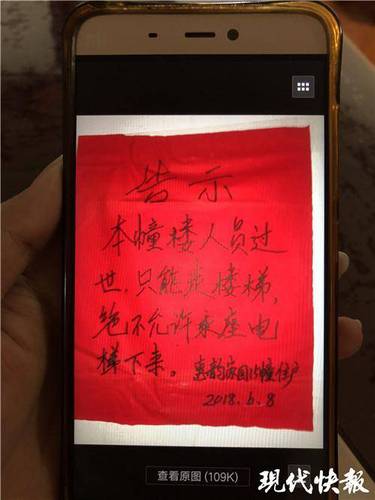 告示
本幢楼人员过
世，只能走楼梯，
绝不允许乘座电
梯下来。
惠韵家园15幢住户
2018.6.8
查看原图(109K)
现代快报